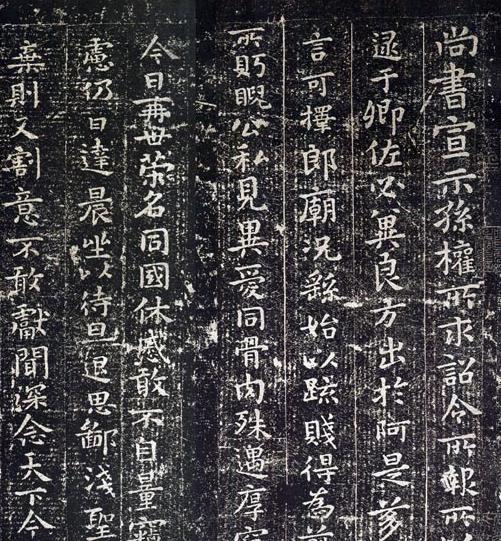 尚書宣示孫權所求詔令所報所
逮于卿佐必冀良方出於阿是芻
言可擇郎廟況繇始以疏賤得為
所眄睨公私見異愛同骨肉殊遇厚
今日再世榮名同國休慼敢不自量竊
慮仍日達晨坐以待旦退思鄙淺聖
棄則又割意不敢獻聞深念天下今